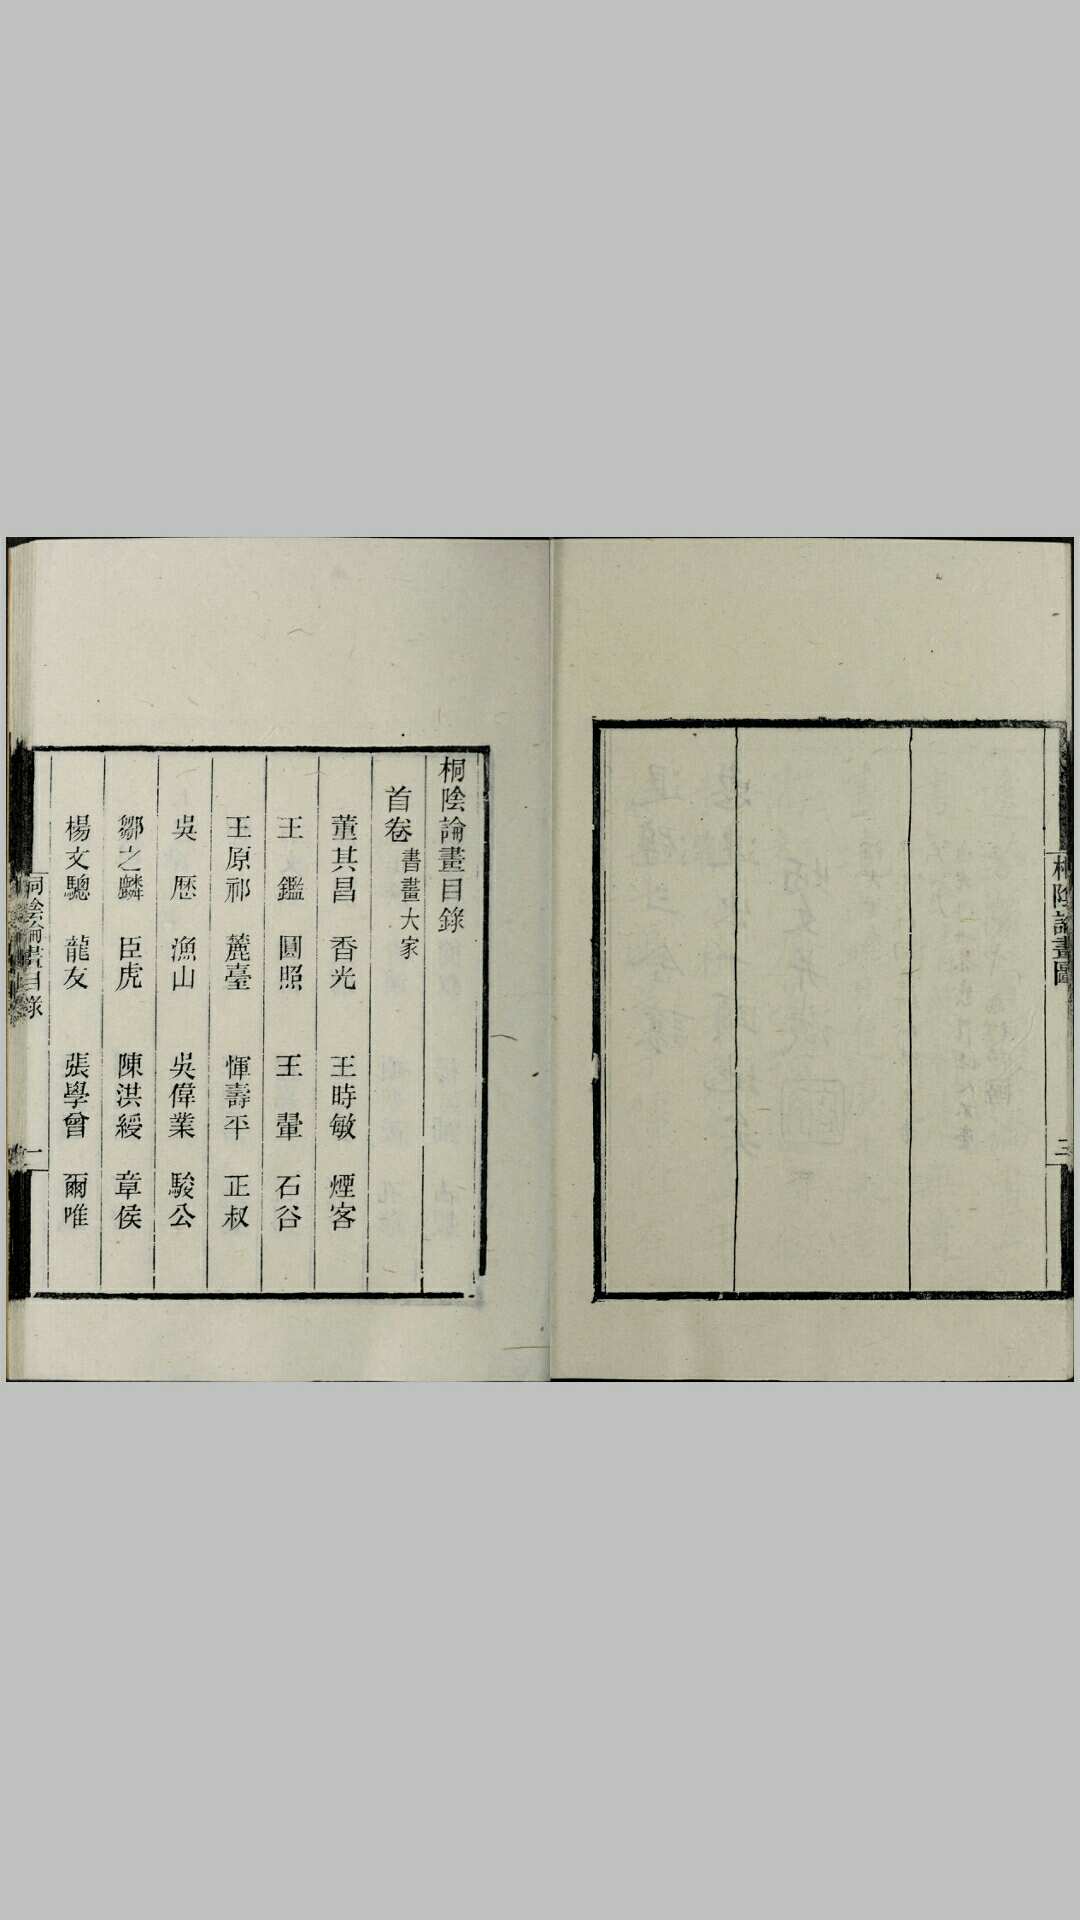 桐陰論畫圖
三
桐陰論畫目錄
首卷 書畫大家
董其昌 香光 王時敏 煙客
王 鑑 圓照 王 翬 石谷
王原祁 麓臺 惲壽平 正叔
吳 歷 漁山 吳偉業 駿公
鄒之麟 臣虎 陳洪綬 章侯
楊文驄 龍友 張學曾 爾唯
桐陰論畫目錄
一